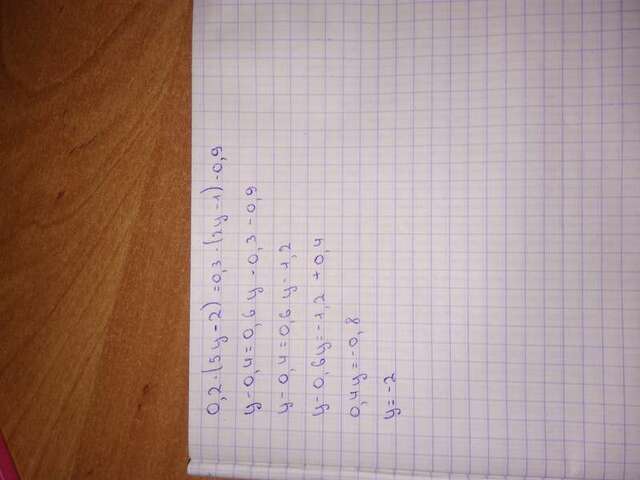 0,2·(5y-2)=0,3·(2y-1)-0,9
y-0,4=0,6y-0,3-0,9
y-0,4=0,6y-1,2
y-0,6y=-1,2+0,4
0,4y=-0,8
y=-2